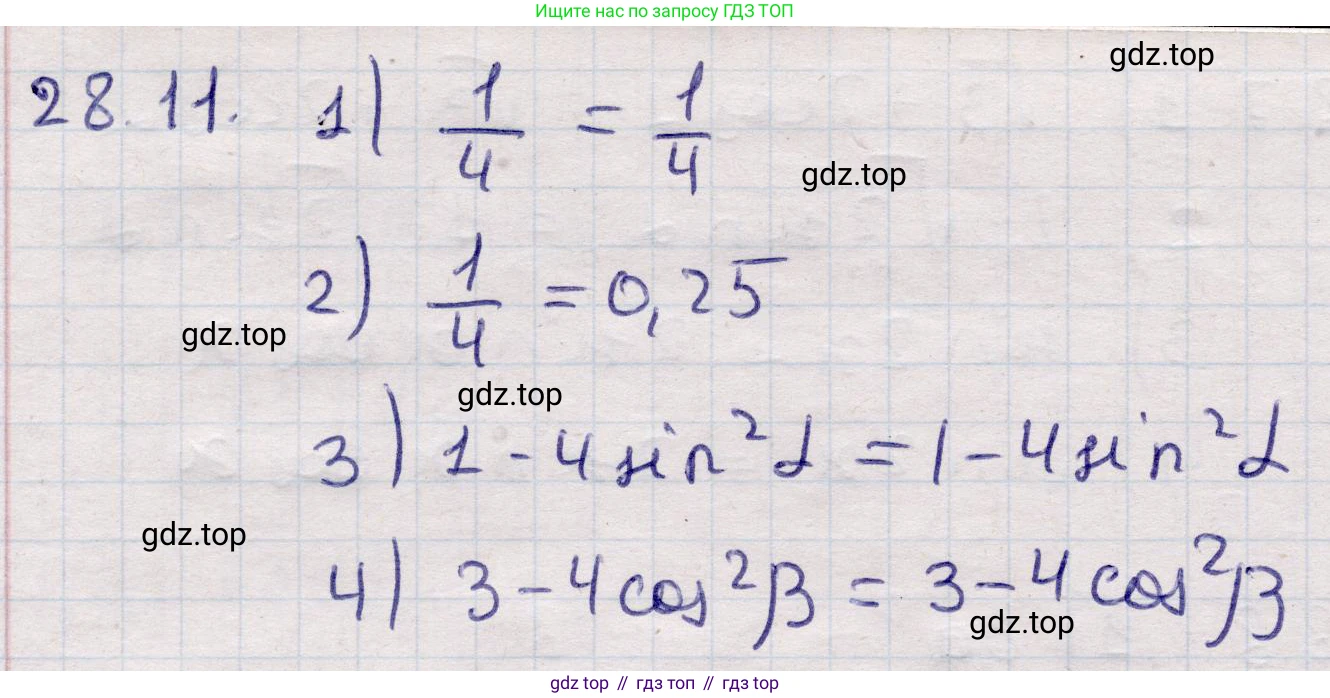 Ищите нас по запросу ГДЗ ТОП
gdz.top
28.11. 1) 1/4 = 1/4
gdz.top
2) 1/4 = 0,25
gdz.top
gdz.top
3) 1 - 4 sin²α = 1 - 4 sin²α
gdz.top
4) 3 - 4 cos²β = 3 - 4 cos²β
gdz.top
gdz top // гдз топ // гдз top